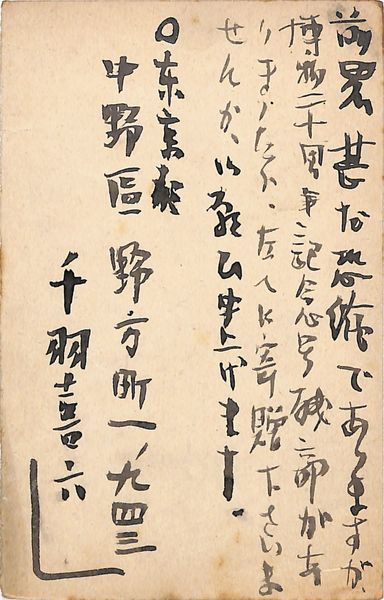 前略 甚だ恐縮でありますが、
博物二十周年記念号残部があ
りましたら、左へ御寄贈下さいま
せんか、御願ひ申上げます。
〇東京都
中野區野方町一ノ九四三
千羽喜六